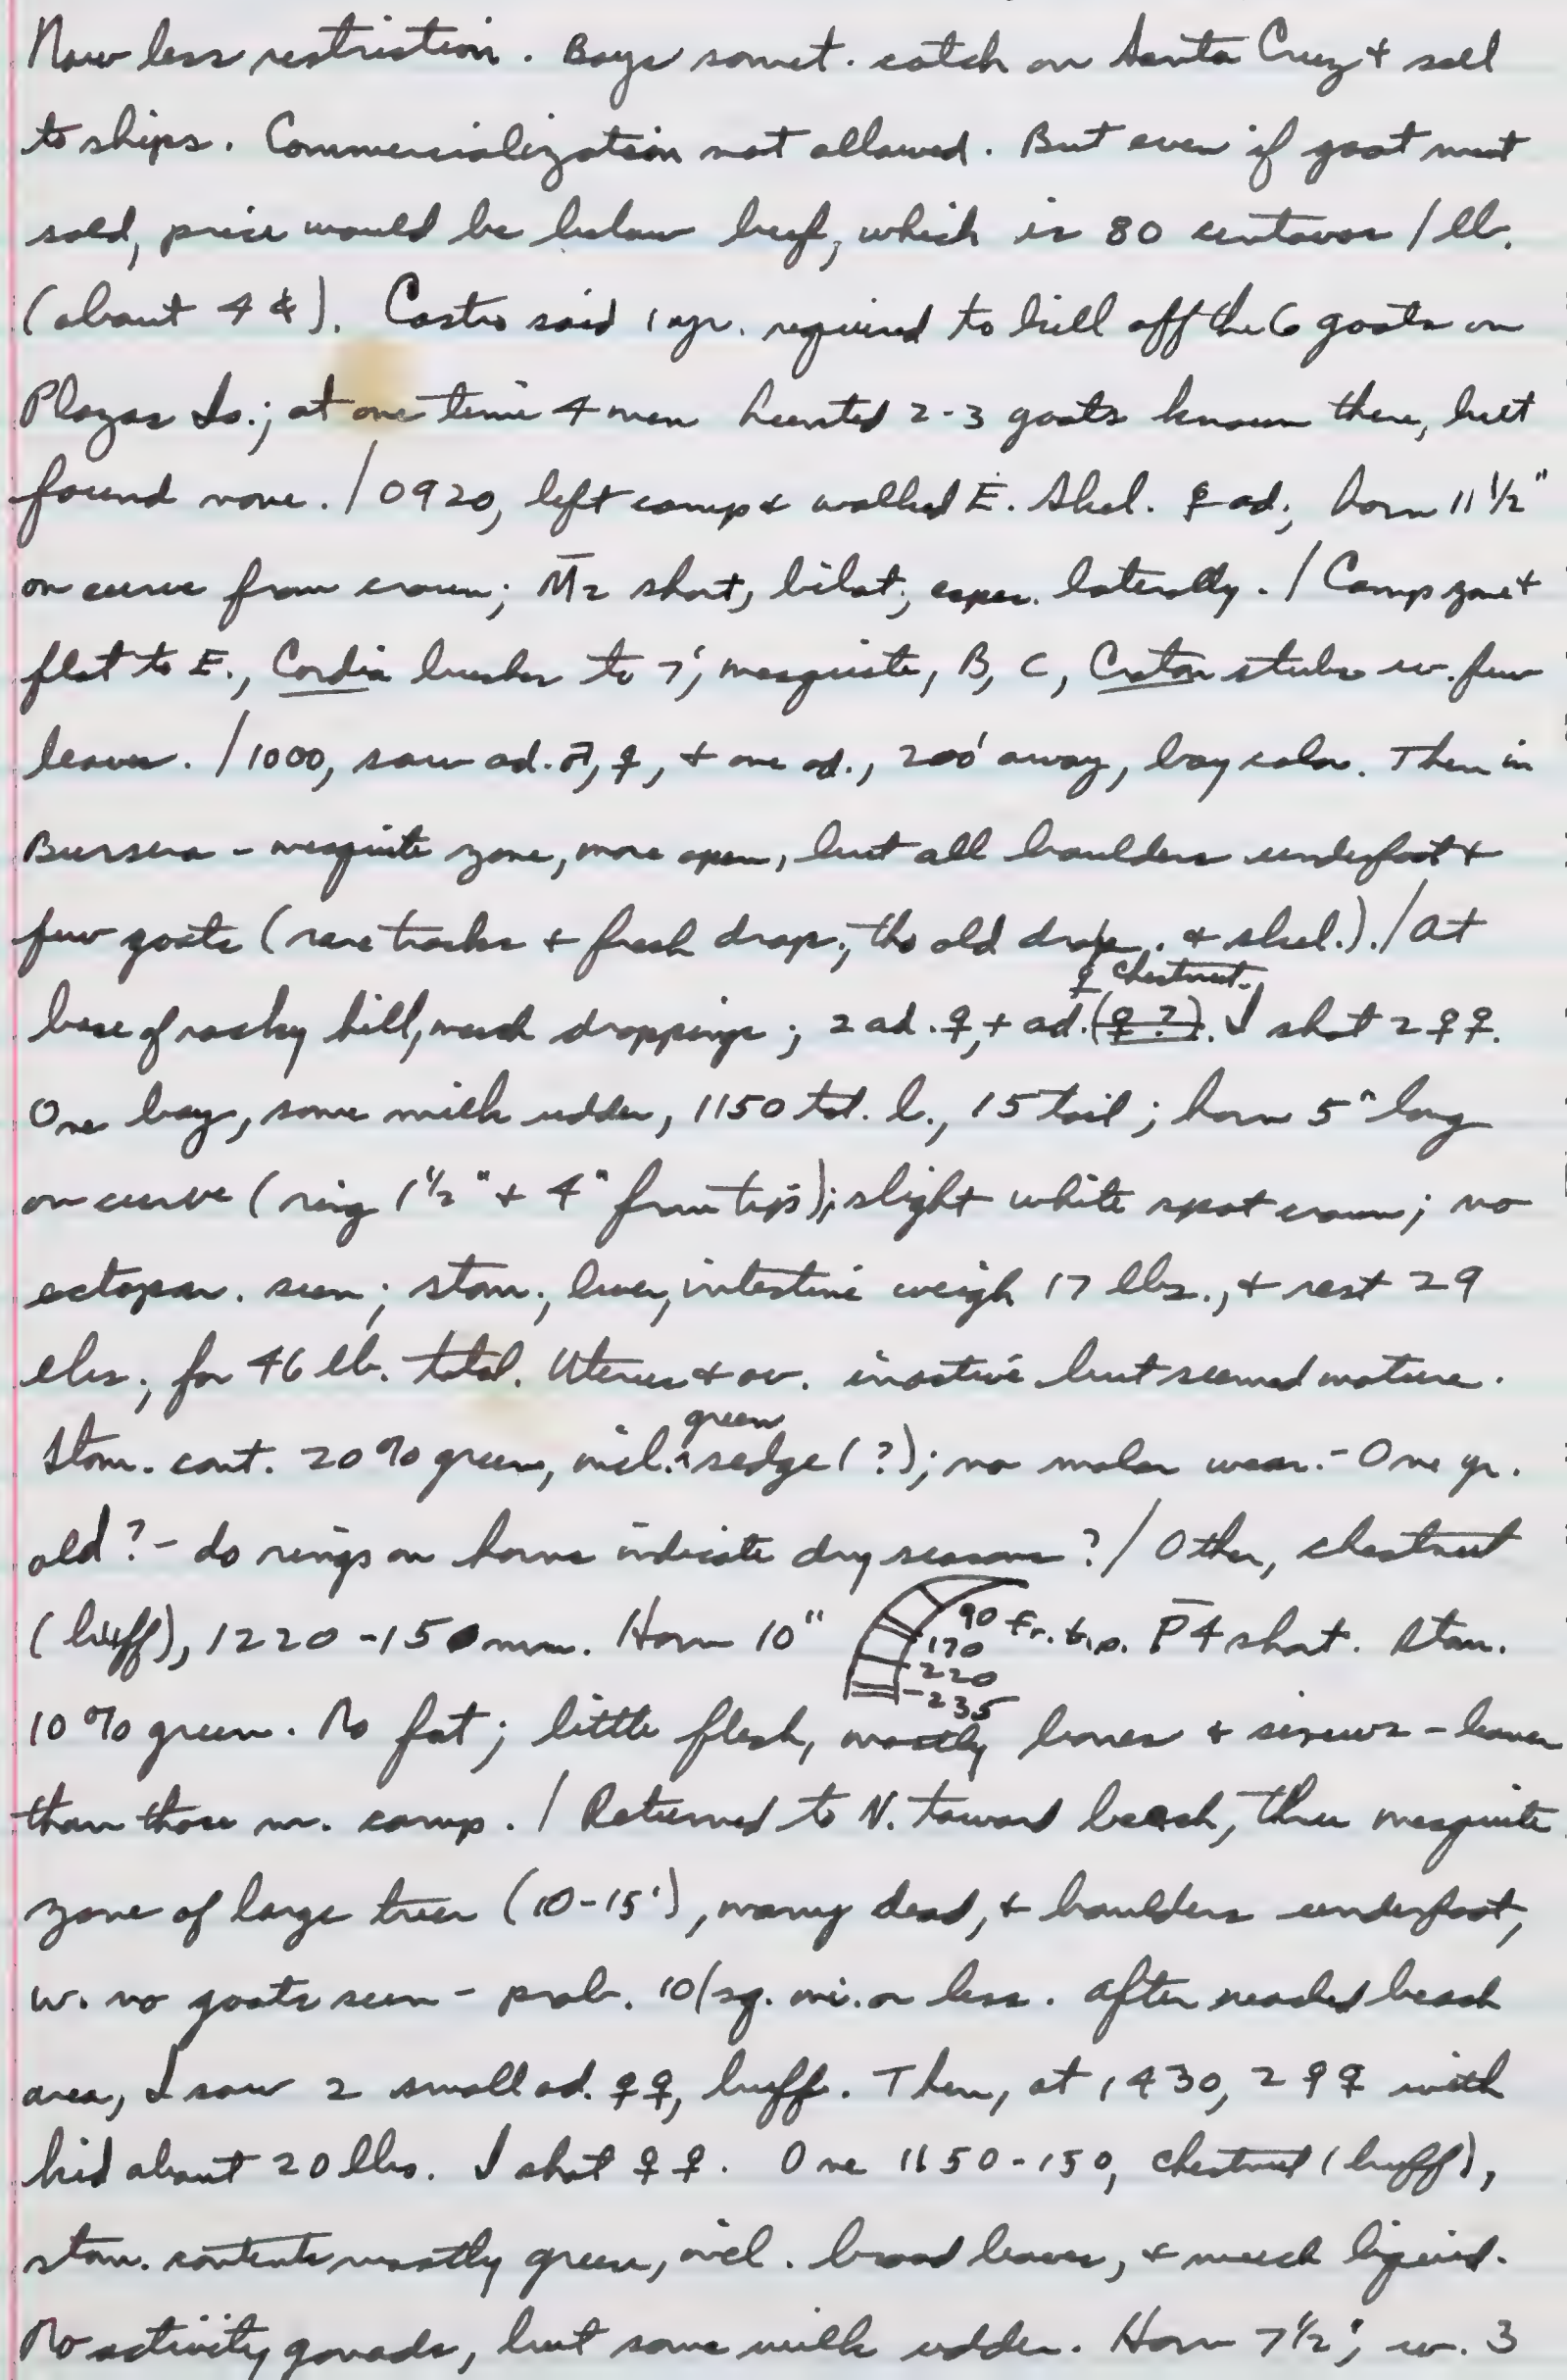 Now less restriction. Boys somet. catch on Santa Cruz + sell
to ships. Commercialization not allowed. But even if goat meat
sold, price would be below beef, which is 80 centavos / lb.
(about 4 ¢). Castro said 1 yr. required to kill off the 6 goats on
Plazas Is.; at one time 4 men hunted 2-3 goats known there, but
found none. / 0920, left camp & walked E. Skel. ♀ ad., horn 11 1/2"
on curve from crown; M̅2 short, bilat., espec. laterally. / Camp zone +
flat to E., Cordia bushes to 7', mesquite, B, C, Croton stubs w. few
leaves. / 1000, saw ad. ♂, ♀, + one ad., 200' away, bay color. Then in
Bursera - mesquite zone, more open, but all boulders underfoot +
few goats (rare tracks + fresh drop., tho old drop. & skel.). / At
base of rocky hill, much droppings; 2 ad. ♀, + ad. (♀ ?). ♀ chestnut. I shot 2 ♀♀.
One bay, some milk udder, 1150 tot. l., 15 tail; horn 5" long
on curve (ring 1 1/2" + 4" from tips); slight white spot crown; no
ectopar. seen; stom., liver, intestine weigh 17 lbs., + rest 29
lbs., for 46 lb. total. Uterus + ov. inactive but seemed mature.
Stom. cont. 20% green, incl. green sedge (?); no molar wear. - One yr.
old? - do rings on horns indicate dry seasons? / Other, chestnut
(buff), 1220-150 mm. Horn 10" 90 fr. tip. P̅4 short. Stom.
170
220
235
10% green. No fat; little flesh, mostly bones + sinews - leaner
than those nr. camp. / Returned to N. toward beach, thru mesquite
zone of large trees (10-15'), many dead, + boulders underfoot,
w. no goats seen - prob. 10/sq. mi. or less. After reached beach
area, I saw 2 small ad. ♀♀, buff. Then, at 1430, 2 ♀♀ with
kid about 20 lbs. I shot ♀♀. One 1150-150, chestnut (buff),
stom. contents mostly green, incl. broad leaves, + much liquid.
No activity gonads, but some milk udder. Horn 7 1/2", w. 3